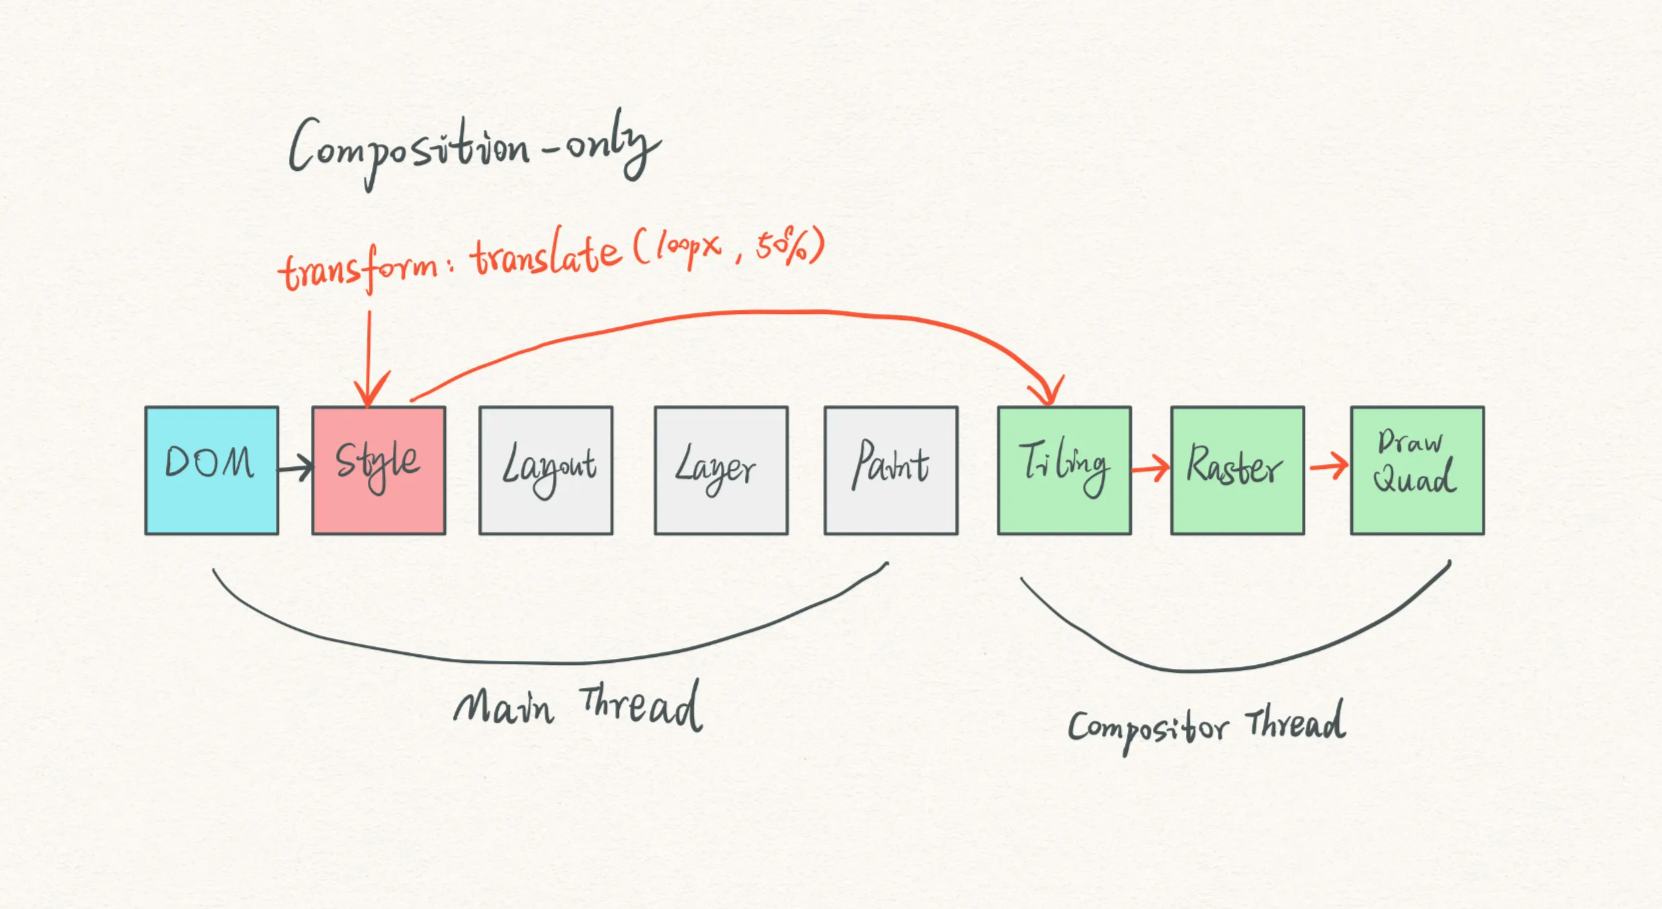 Composition-only
transform: translate(100px, 50%)
DOM
Style
Layout
Layer
Paint
Tiling
Raster
Draw
Quad
Main Thread
Compositor Thread